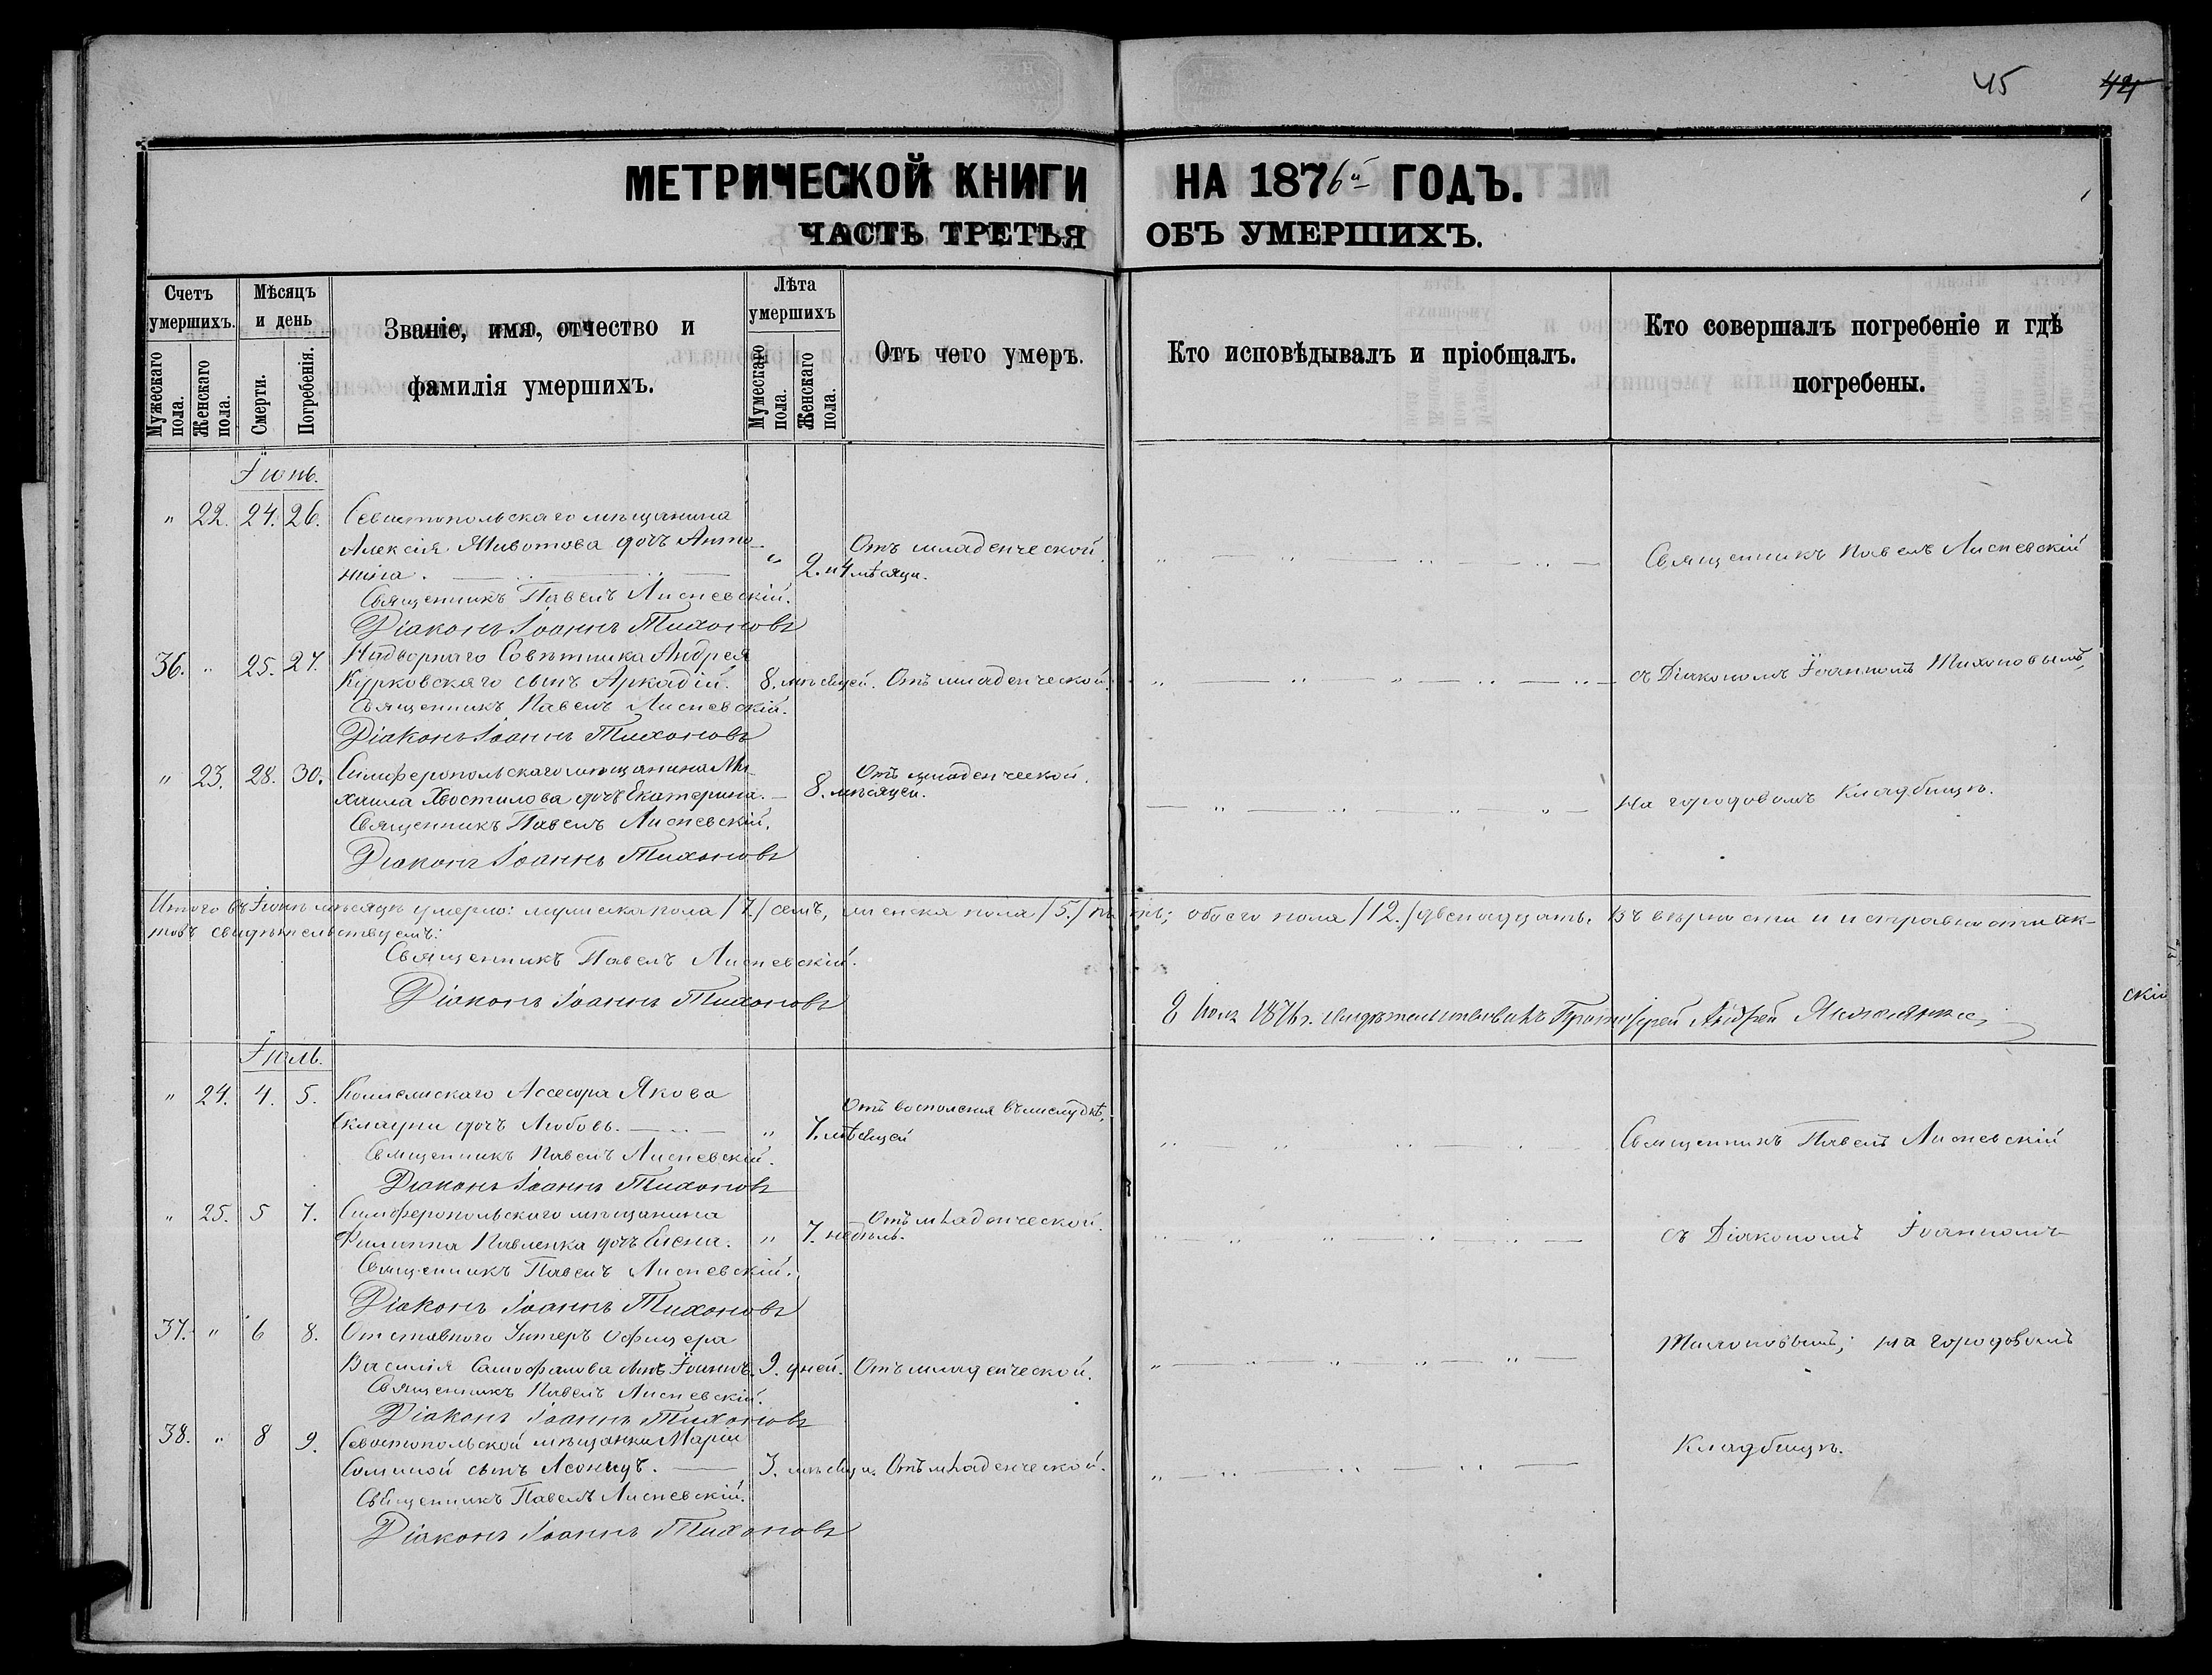 45 44
МЕТРИЧЕСКОЙ КНИГИ НА 1876й ГОДЪ.
ЧАСТЬ ТРЕТЬЯ ОБЪ УМЕРШИХЪ.
Счетъ умершихъ.
Мужескаго пола.
Женскаго пола.
Мѣсяцъ и день
Смерти.
Погребенія.
Званіе, имя, отчество и
фамилія умершихъ.
Лѣта умершихъ
Мумескаго пола.
Женскаго пола.
Отъ чего умеръ.
Кто исповѣдывалъ и пріобщалъ.
Кто совершалъ погребеніе и гдѣ
погребены.
Іюнь.
" 22. 24. 26. Севастопольскаго мѣщанина
Алексія Животова дочь Анто-
нина. " 2. и 4 мѣсяци. Отъ младенческой. Священникъ Павелъ Лисневскій
Священникъ Павелъ Лисневскій.
Діаконъ Іоаннъ Тихоновъ
36. " 25. 27. Надворнаго Совѣтника Андрея
Курковскаго сынъ Аркадій. 8. мѣсяцей. Отъ младенческой. съ Діакономъ Іоанномъ Тихоновымъ,
Священникъ Павелъ Лисневскій.
Діаконъ Іоаннъ Тихоновъ
" 23. 28. 30. Симферопольскаго мѣщанина Ми-
хаила Хвостилова дочь Екатерина. 8. мѣсяцей. Отъ младенческой. на городовомъ кладбищѣ.
Священникъ Павелъ Лисневскій.
Діаконъ Іоаннъ Тихоновъ
Итого въ Іюнѣ мѣсяцѣ умерло: мужеска пола /7./ семь, женска пола /5./ пять; обоего пола /12./ двенадцать. Въ вѣрности и исправности ак-
товъ свидѣтельствуемъ:
Священникъ Павелъ Лисневскій.
Діаконъ Іоаннъ Тихоновъ
8 Іюля 1876 г. свидѣтельствовалъ Протоіерей Андрей
Іюль.
" 24. 4. 5. Коллежскаго Ассесора Якова
дочь Любовь. " 7. мѣсяцей Отъ воспаленія въ желудкѣ. Священникъ Павелъ Лисневскій
Священникъ Павелъ Лисневскій.
Діаконъ Іоаннъ Тихоновъ
" 25. 5 7. Симферопольскаго мѣщанина
Филиппа Павленка дочь Елена. " 7. недѣль. Отъ младенческой. съ Діакономъ Іоанномъ
Священникъ Павелъ Лисневскій.
Діаконъ Іоаннъ Тихоновъ
37. " 6 8. Отставного Унтеръ Офицера
Василія Самофалова сынъ Іоаннъ. 9. дней. Отъ младенческой. Тихоновымъ; на городовомъ
Священникъ Павелъ Лисневскій.
Діаконъ Іоаннъ Тихоновъ
38. " 8 9. Севастопольской мѣщанки Маріи
сынъ Леонидъ. 3. мѣсяци. Отъ младенческой. кладбищѣ.
Священникъ Павелъ Лисневскій.
Діаконъ Іоаннъ Тихоновъ